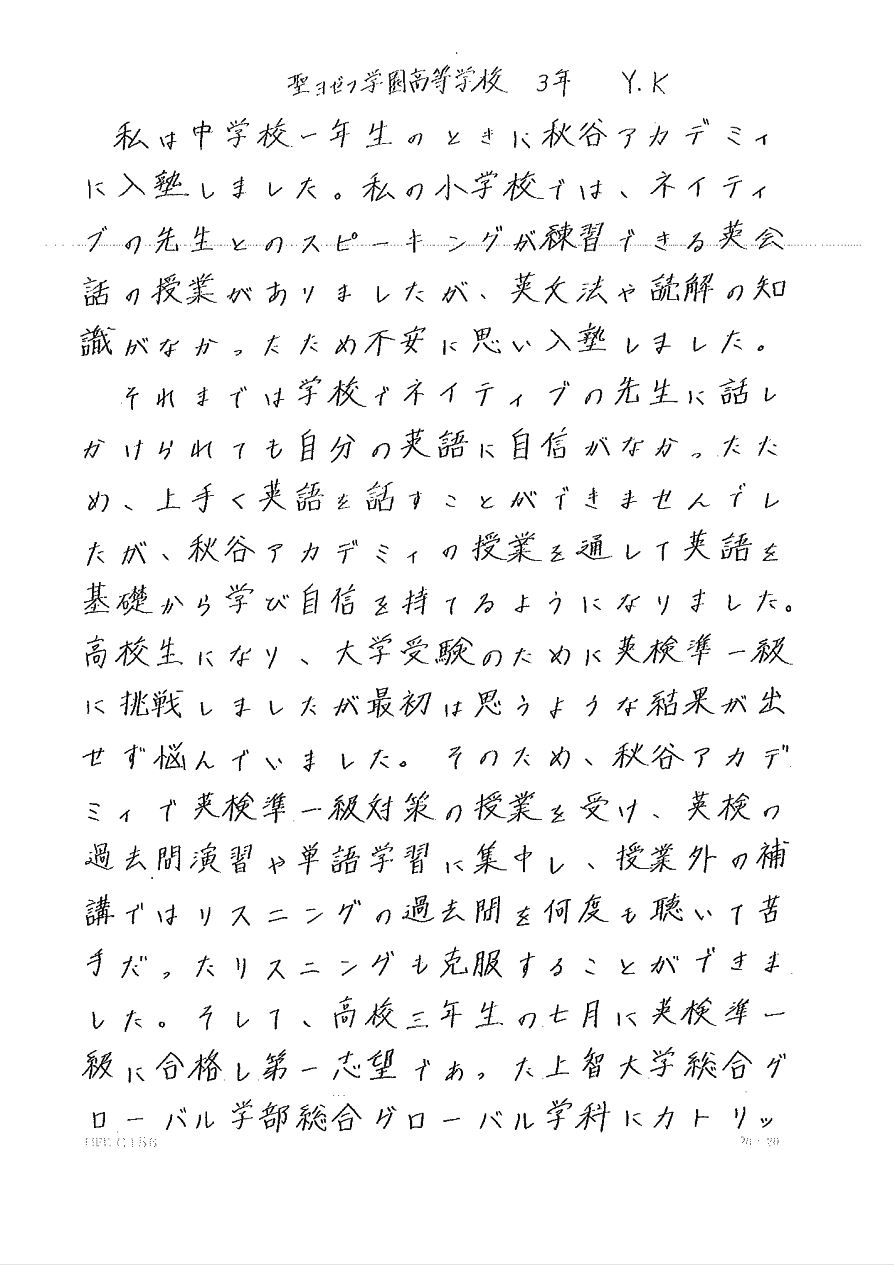 聖ヨゼフ学園高等学校 3年 Y.K
私は中学校一年生のときに秋谷アカデミィ
に入塾しました。私の小学校では、ネイティ
ブの先生とのスピーキングが練習できる英会
話の授業がありましたが、英文法や読解の知
識がなかったため不安に思い入塾しました。
それまでは学校でネイティブの先生に話し
かけられても自分の英語に自信がなかったた
め、上手く英語を話すことができませんでし
たが、秋谷アカデミィの授業を通して英語を
基礎から学び自信を持てるようになりました。
高校生になり、大学受験のために英検準一級
に挑戦しましたが最初は思うような結果が出
せず悩んでいました。そのため、秋谷アカデ
ミィで英検準一級対策の授業を受け、英検の
過去問演習や単語学習に集中し、授業外の補
講ではリスニングの過去問を何度も聴いて苦
手だったリスニングも克服することができま
した。そして、高校三年生の七月に英検準一
級に合格し第一志望であった上智大学総合グ
ローバル学部総合グローバル学科にカトリッ
20×20